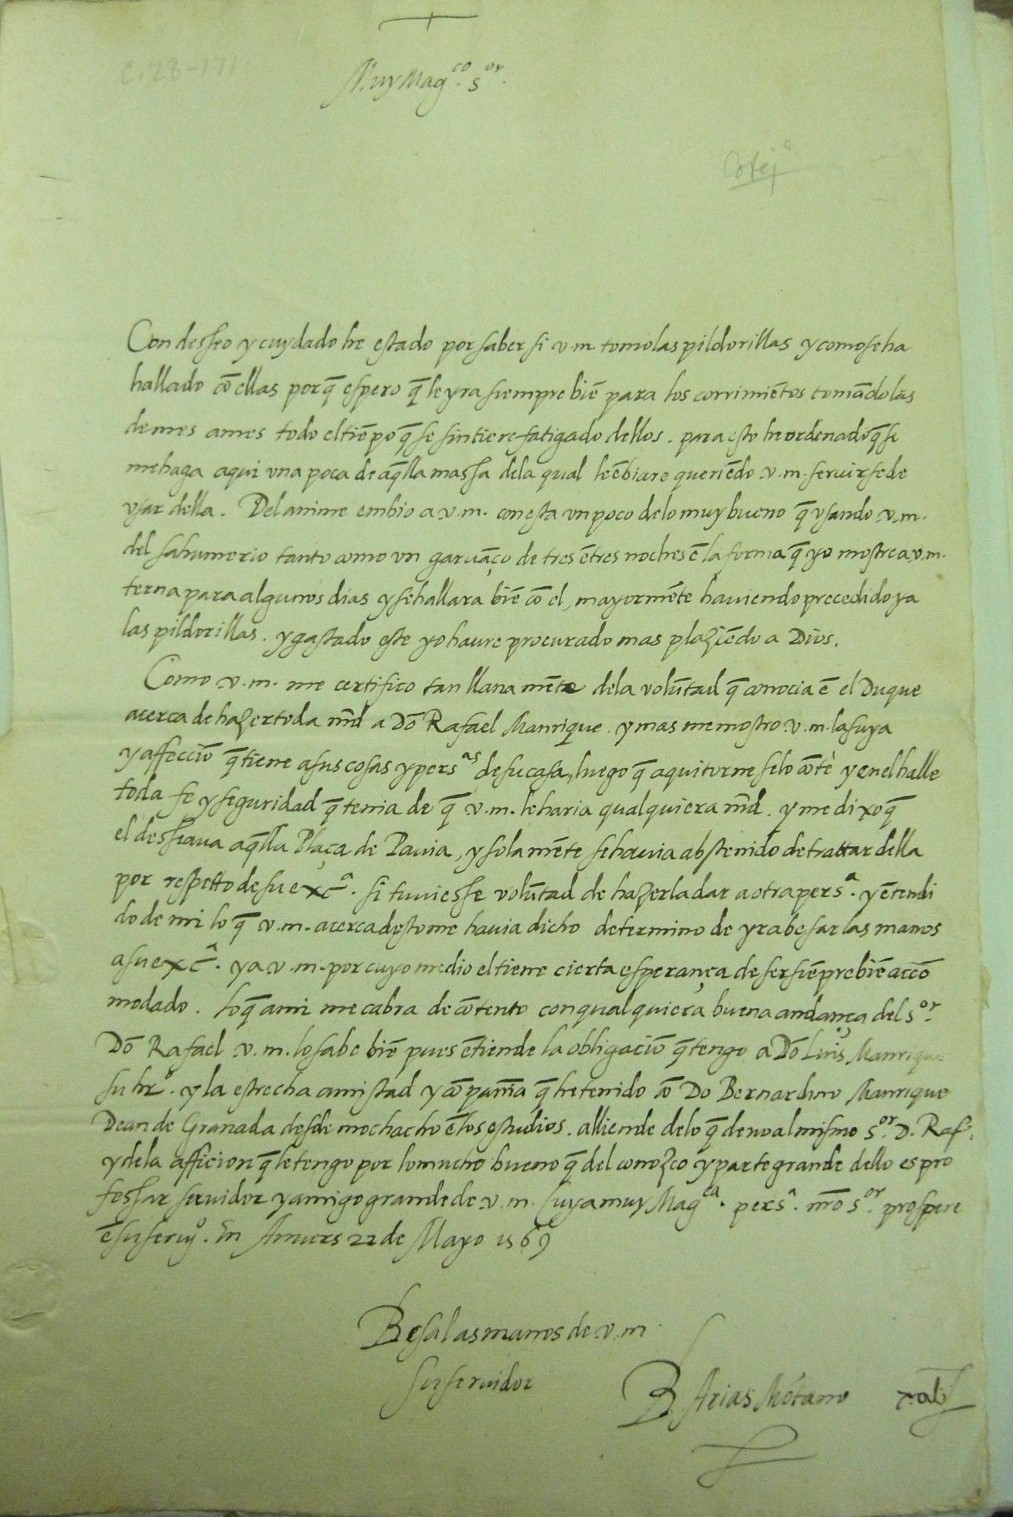 C. 28-171
Muy Mag.co s.or
Cotej.e
Con desseo y cuydado he estado por saber si v.m. tomo las pildorillas y como se ha
hallado cō ellas porq̄ espero q̄ le yra siempre biē para los corrimiētos tomādo las
de mes a mes todo el tiēpo q̄ se sintiere fatigado dellos. para esto he ordenado q̄ se
me haga aqui vna poca de aq̄lla massa de la qual le ēbiare queriēdo .v.m. seruirse de
vsar della. Del anime embio a v.m. con esta vn poco de lo muy bueno q̄ vsando .v.m.
del sahumerio tanto como vn garuāço de tres ē tres noches ē la forma q̄ yo mostre a v.m.
terna para algunos dias y se hallara biē cō el, mayormēte hauiendo precedido ya
las pildorillas. y gastado este yo haure procurado mas plaziēdo a Dios.
Como .v.m. me certifico tan llana mēte de la volūtad q̄ conocia ē el Duque
acerca de hazer toda m̄d a Dō Rafael Manrique. y mas me mostro .v.m. la suya
y affecciō q̄ tiene a sus cosas y pers.as de su casa, luego q̄ aqui torne se lo cōtè y en el halle
toda fe y seguridad q̄ tenia de q̄ v.m. le haria qualquiera m̄d. y me dixo q̄
el desseaua aq̄lla Plaça de Pauia, y sola mēte se hauia abstenido de trattar della
por respetto de su exc.ª si tuuiesse volūtad de hazerla dar a otra pers.ª y ētendi
do de mi lo q̄ v.m. acerca desto me hauia dicho determino de yr a besar las manos
a su exc.ª y a v.m. por cuyo medio el tiene cierta esperança de ser siēpre biē acco
modado. lo q̄ a mi me cabra de cōtento con qualquiera buena andança del s.or
Dō Rafael v.m. lo sabe biē pues ētiende la obligaciō q̄ tengo a Dō Luis Manrique
su hr.o y la estrecha amistad y cōpañia q̄ he tenido cō Do Bernardino Manrique
Dean de Granada desde mochacho ē los estudios. alliende de lo q̄ deuo al mismo s.or D. Raf.
y de la afficion q̄ le tengo por lo mucho bueno q̄ del conozco y parte grande dello es pro
fessar seruidor y amigo grande de .v.m. cuya muy Mag.ca pers.ª nr̄o s.or prospere
ē su serui.o En Anuers 22 de Mayo 1569
Besa las manos de .v.m.
su seruidor
B. Arias Mōtano